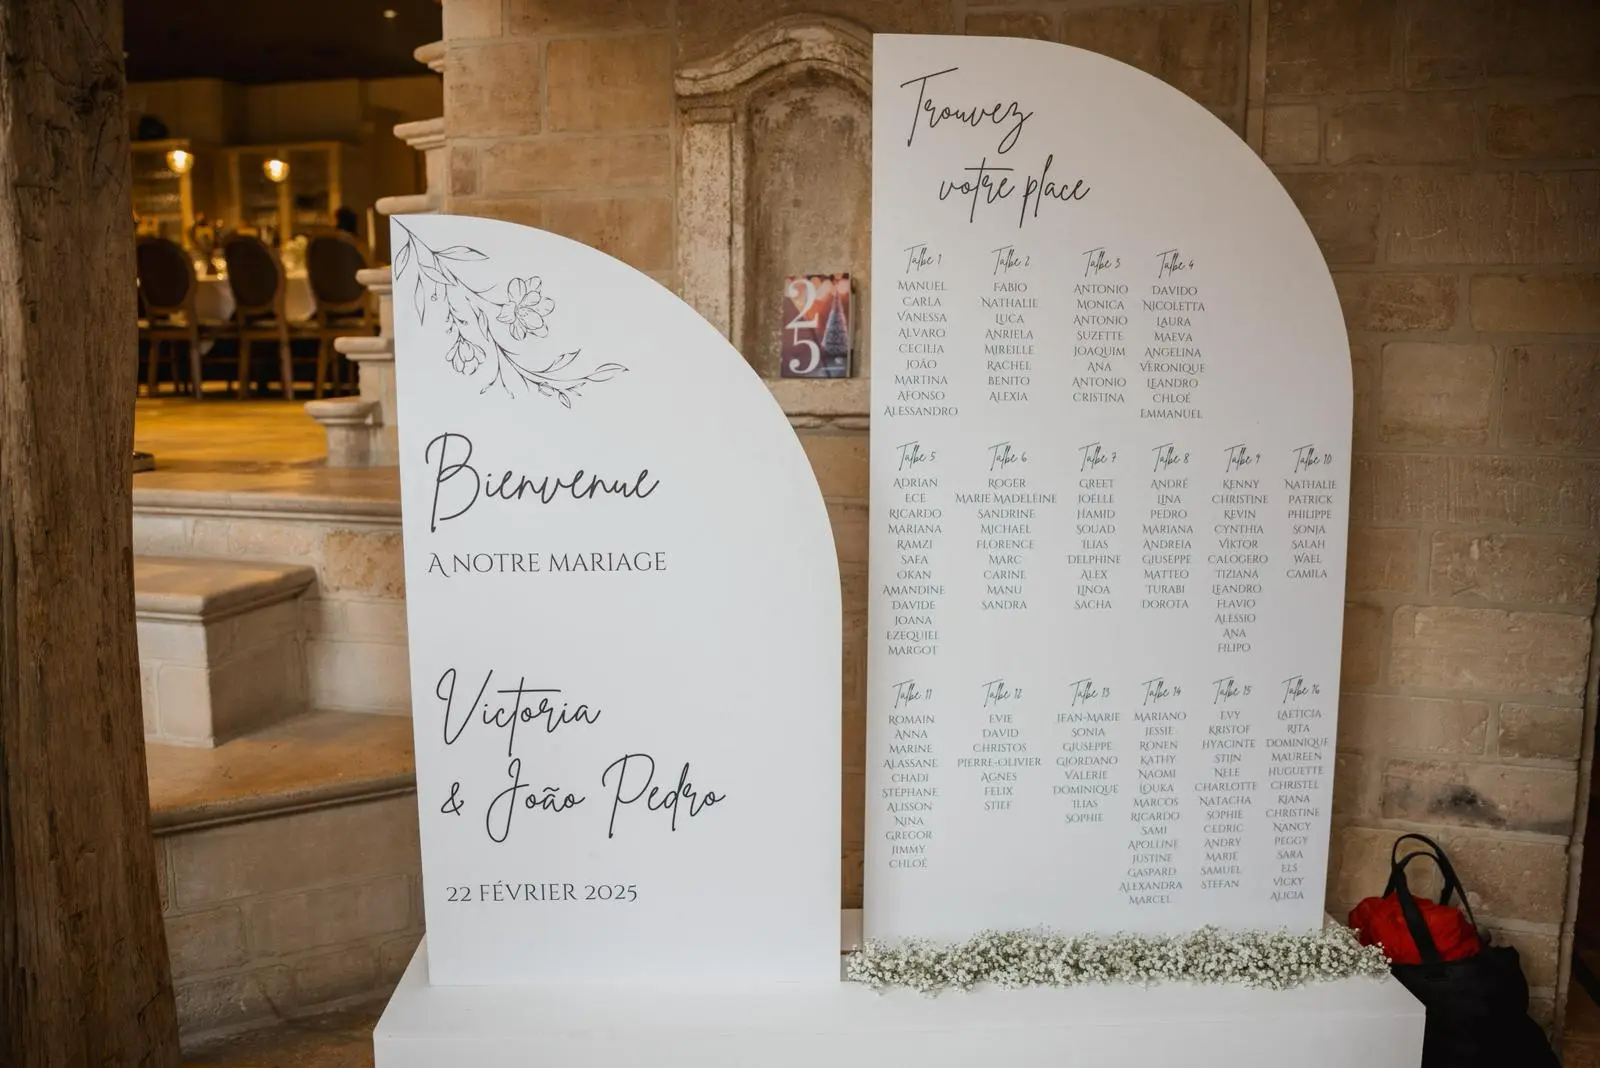 Bienvenue
A NOTRE MARIAGE
Victoria
& João Pedro
22 FÉVRIER 2025
25
Trouvez
votre place
Talbe 1
MANUEL
CARLA
VANESSA
ALVARO
CECILIA
JOÃO
MARTINA
AFONSO
ALESSANDRO
Talbe 2
FABIO
NATHALIE
LUCA
ANRIELA
MIREILLE
RACHEL
BENITO
ALEXIA
Talbe 3
ANTONIO
MONICA
ANTONIO
SUZETTE
JOAQUIM
ANA
ANTONIO
CRISTINA
Talbe 4
DAVIDO
NICOLETTA
LAURA
MAEVA
ANGELINA
VERONIQUE
LEANDRO
CHLOÉ
EMMANUEL
Talbe 5
ADRIAN
ECE
RICARDO
MARIANA
RAMZI
SAFA
OKAN
AMANDINE
DAVIDE
JOANA
EZEQUIEL
MARGOT
Talbe 6
ROGER
MARIE MADELEINE
SANDRINE
MICHAEL
FLORENCE
MARC
CARINE
MANU
SANDRA
Talbe 7
GREET
JOËLLE
HAMID
SOUAD
ILIAS
DELPHINE
ALEX
LINOA
SACHA
Talbe 8
ANDRÉ
LINA
PEDRO
MARIANA
ANDREIA
GIUSEPPE
MATTEO
TURABI
DOROTA
Talbe 9
KENNY
CHRISTINE
KEVIN
CYNTHIA
VIKTOR
CALOGERO
TIZIANA
LEANDRO
FLAVIO
ALESSIO
ANA
FILIPO
Talbe 10
NATHALIE
PATRICK
PHILIPPE
SONJA
SALAH
WAEL
CAMILA
Talbe 11
ROMAIN
ANNA
MARINE
ALASSANE
CHADI
STÉPHANE
ALISSON
NINA
GREGOR
JIMMY
CHLOÉ
Talbe 12
EVIE
DAVID
CHRISTOS
PIERRE-OLIVIER
AGNES
FELIX
STIEF
Talbe 13
JEAN-MARIE
SONIA
GIUSEPPE
GIORDANO
VALERIE
DOMINIQUE
ILIAS
SOPHIE
Talbe 14
MARIANO
JESSIE
RONEN
KATHY
NAOMI
LOUKA
MARCOS
RICARDO
SAMI
APOLLINE
JUSTINE
GASPARD
ALEXANDRA
MARCEL
Talbe 15
EVY
KRISTOF
HYACINTE
STIJN
NELE
CHARLOTTE
NATACHA
SOPHIE
CEDRIC
ANDRY
MARIE
SAMUEL
STEFAN
Talbe 16
LAETICIA
RITA
DOMINIQUE
MAUREEN
HUGUETTE
CHRISTEL
KIANA
CHRISTINE
NANCY
PEGGY
SARA
ELS
VICKY
ALICIA